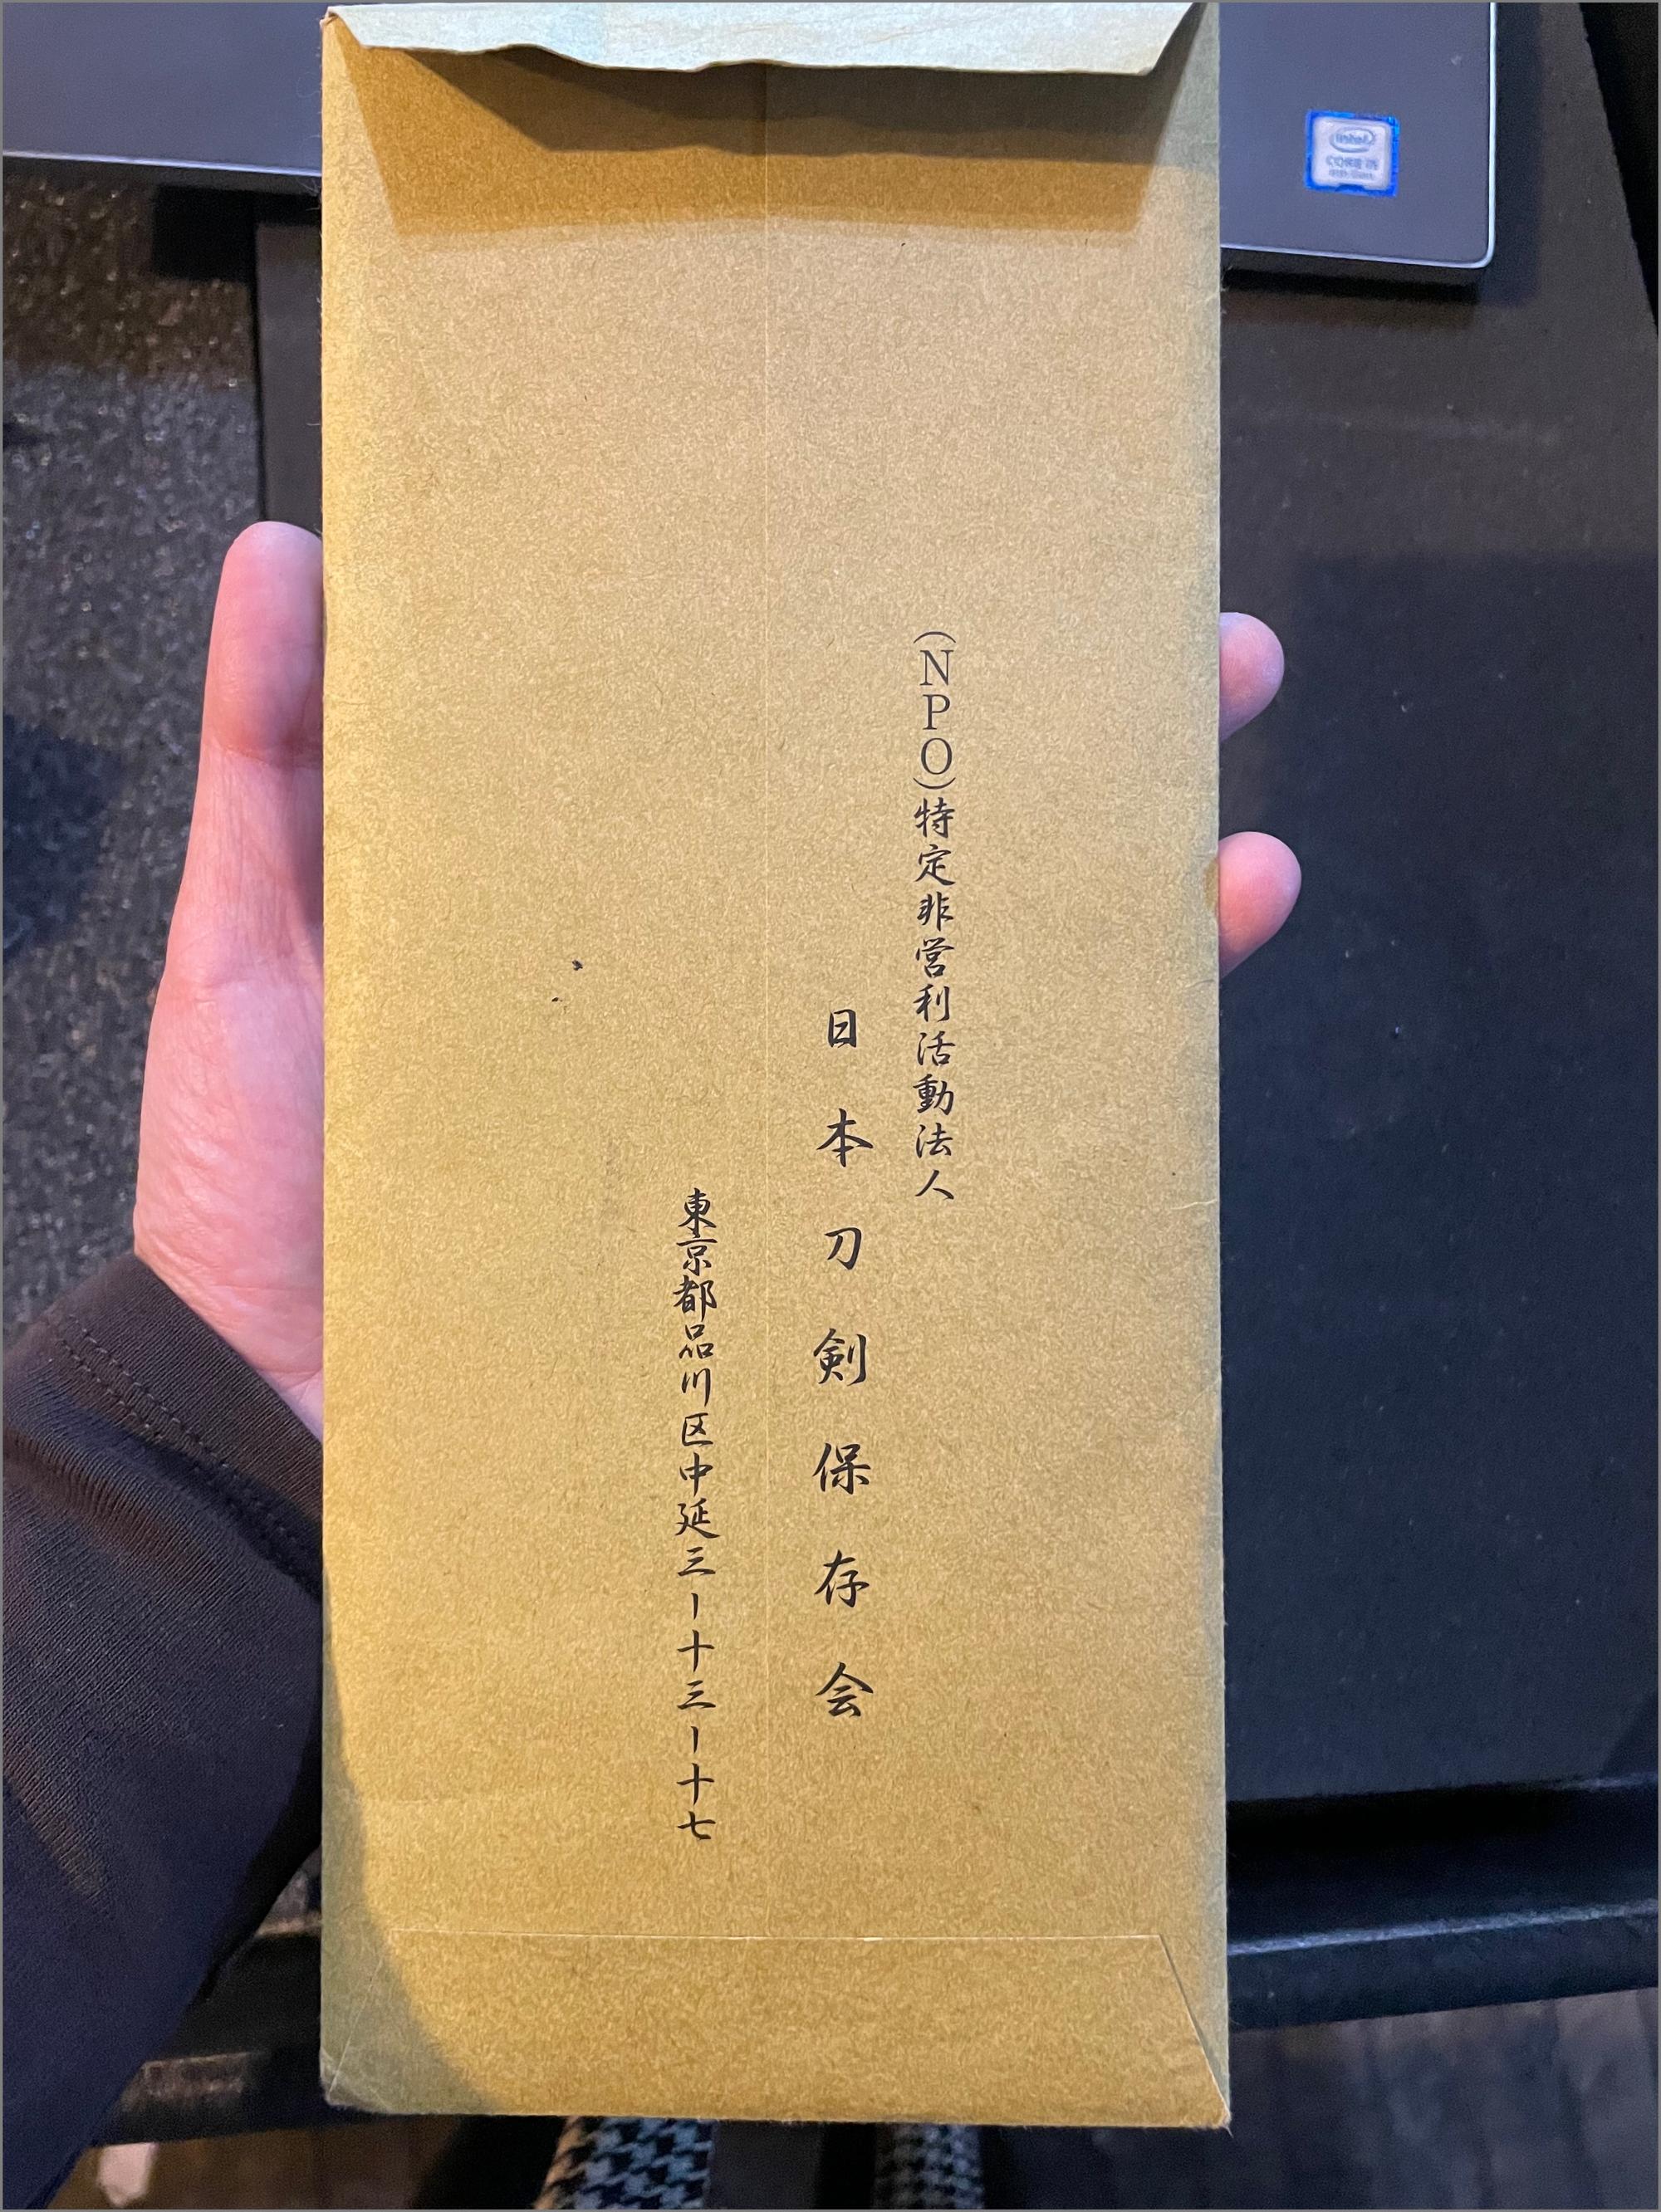 (NPO)特定非営利活動法人
日本刀剣保存会
東京都品川区中延三ー十三ー十七
intel
CORE i5
8th Gen